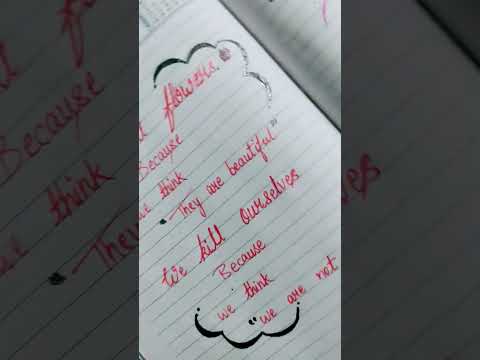 flowers.
Because
we think
"They are beautiful"
We kill ourselves
Because
we think
"we are not